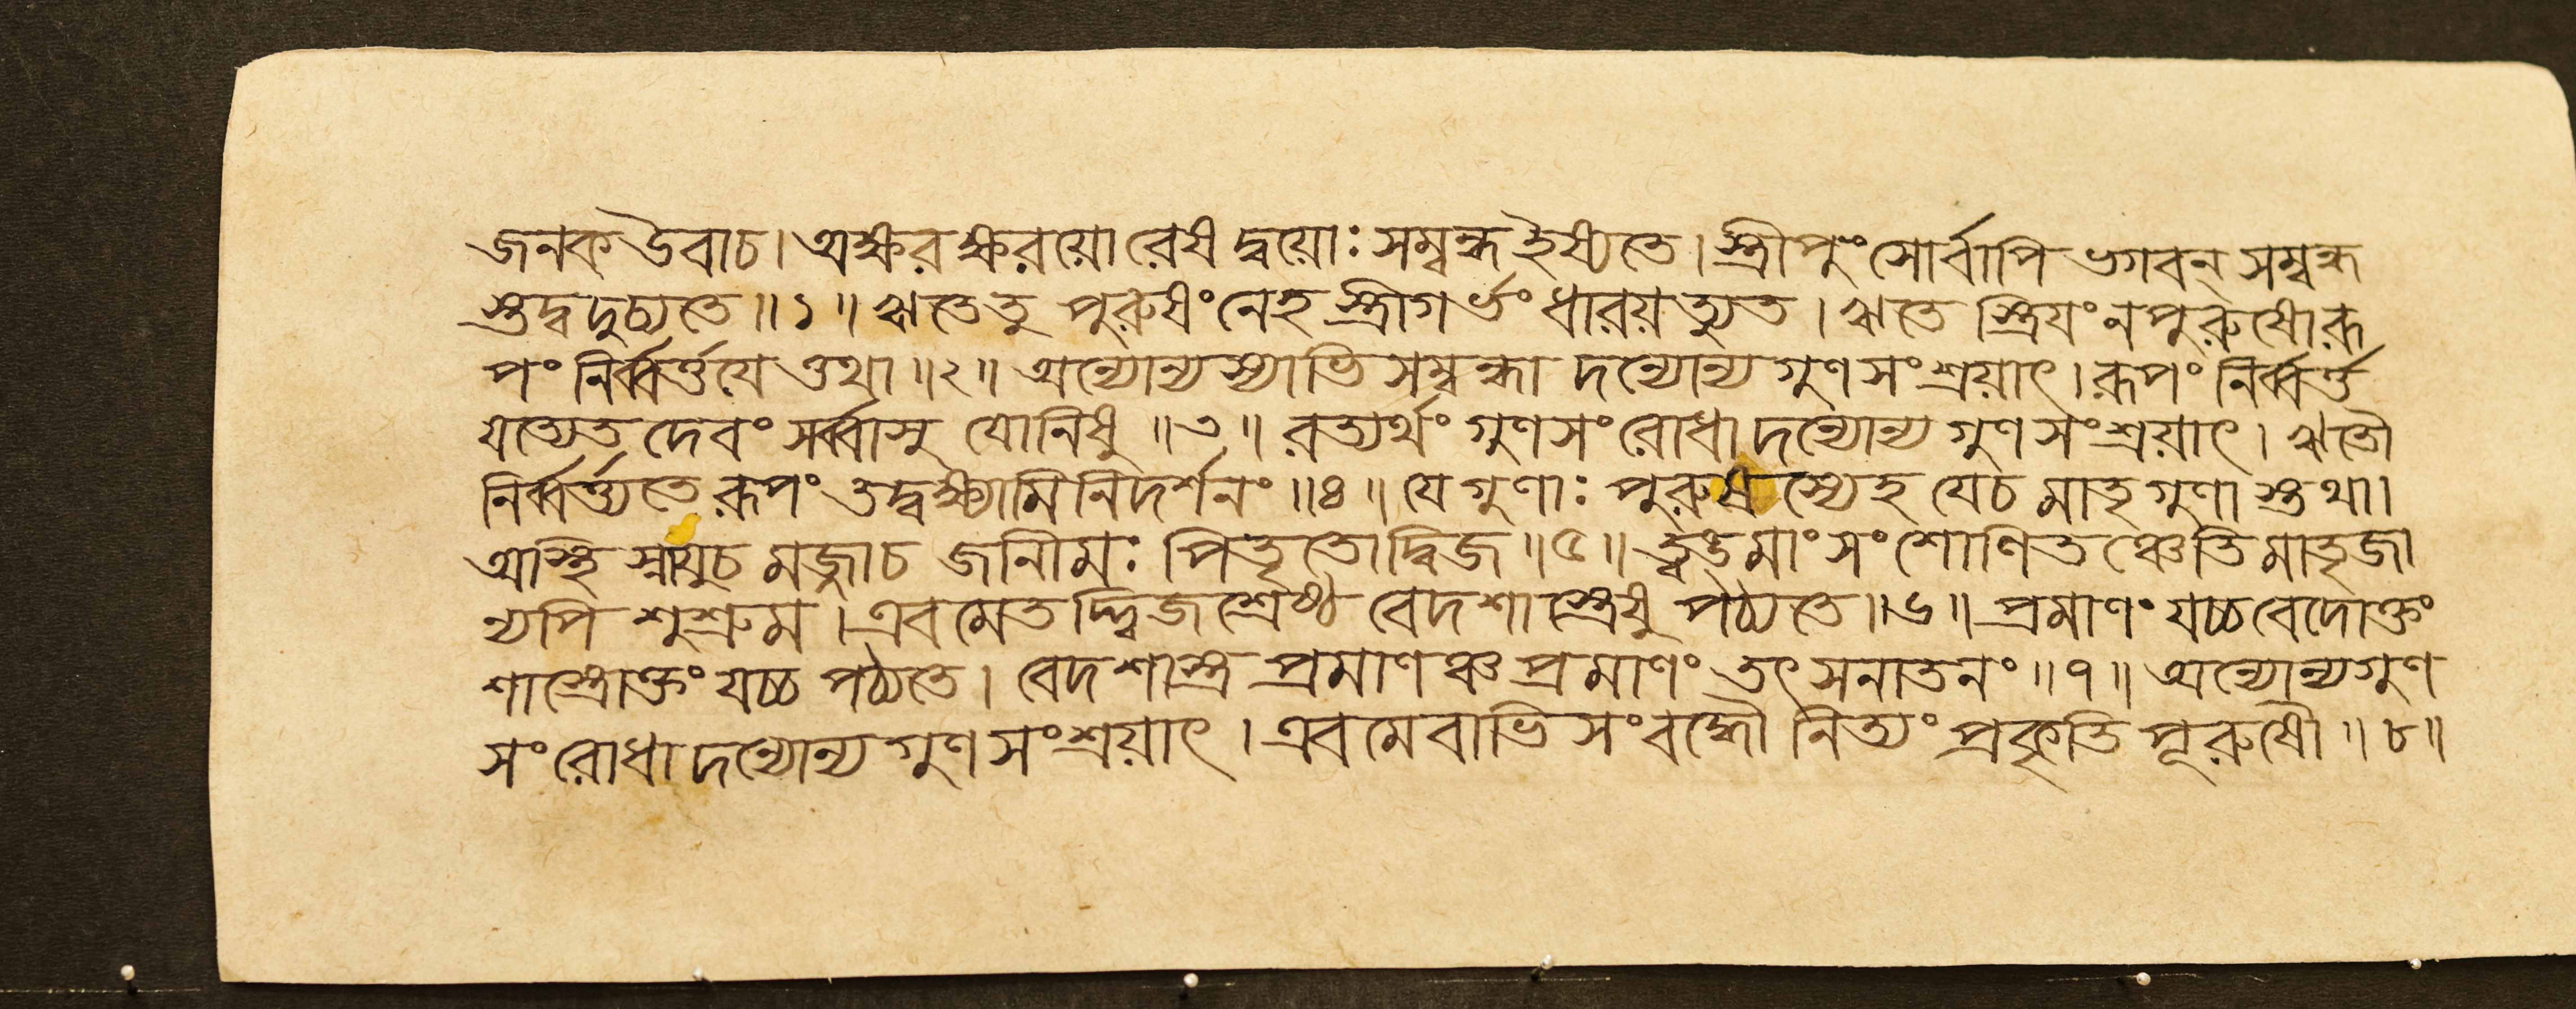 জনক উবাচ। অক্ষর ক্ষরয়ো রেষ দ্বয়োঃ সম্বন্ধ ইষ্যতে। স্ত্রীপুংসোর্বাপি ভগবন্ সম্বন্ধ
স্তদ্ব দুচ্যতে॥১॥ ঋতে তু পুরুষং নেহ স্ত্রী গর্ভং ধারয়ত্যুত। ঋতে স্ত্রিয়ং ন পুরুষো রূ
পং নির্ব্বর্ত্তয়ে ত্তথা॥২॥ অন্যোন্যস্যাভি সম্বন্ধা দন্যোন্য গুণ সংশ্রয়াৎ। রূপং নির্ব্বর্ত্ত
যত্যেত দেবং সর্ব্বাসু যোনিষু॥৩॥ রত্যর্থং গুণ সংরোধা দন্যোন্য গুণ সংশ্রয়াৎ। ঋতৌ
নির্ব্বর্ত্ত্যতে রূপং তদ্বক্ষ্যামি নিদর্শনং॥৪॥ যে গুণাঃ পুরুষস্যেহ যে চ মাতৃ গুণা স্তথা।
অস্থি স্নায়ুচ মজ্জাচ জানীমঃ পিতৃতো দ্বিজ॥৫॥ ত্বঙ্মাংসং শোণিতঞ্চেতি মাতৃজা
ন্যপি শুশ্রুম। এবমেতদ্দ্বিজশ্রেষ্ঠ বেদশাস্ত্রেষু পঠ্যতে॥৬॥ প্রমাণং যচ্চ বেদোক্তং
শাস্ত্রোক্তং যচ্চ পঠ্যতে। বেদশাস্ত্র প্রমাণঞ্চ প্রমাণং তৎ সনাতনং॥৭॥ অন্যোন্যগুণ
সংরোধা দন্যোন্য গুণ সংশ্রয়াৎ। এবমেবাভি সংবদ্ধৌ নিত্যং প্রকৃতি পূরুষৌ॥৮॥